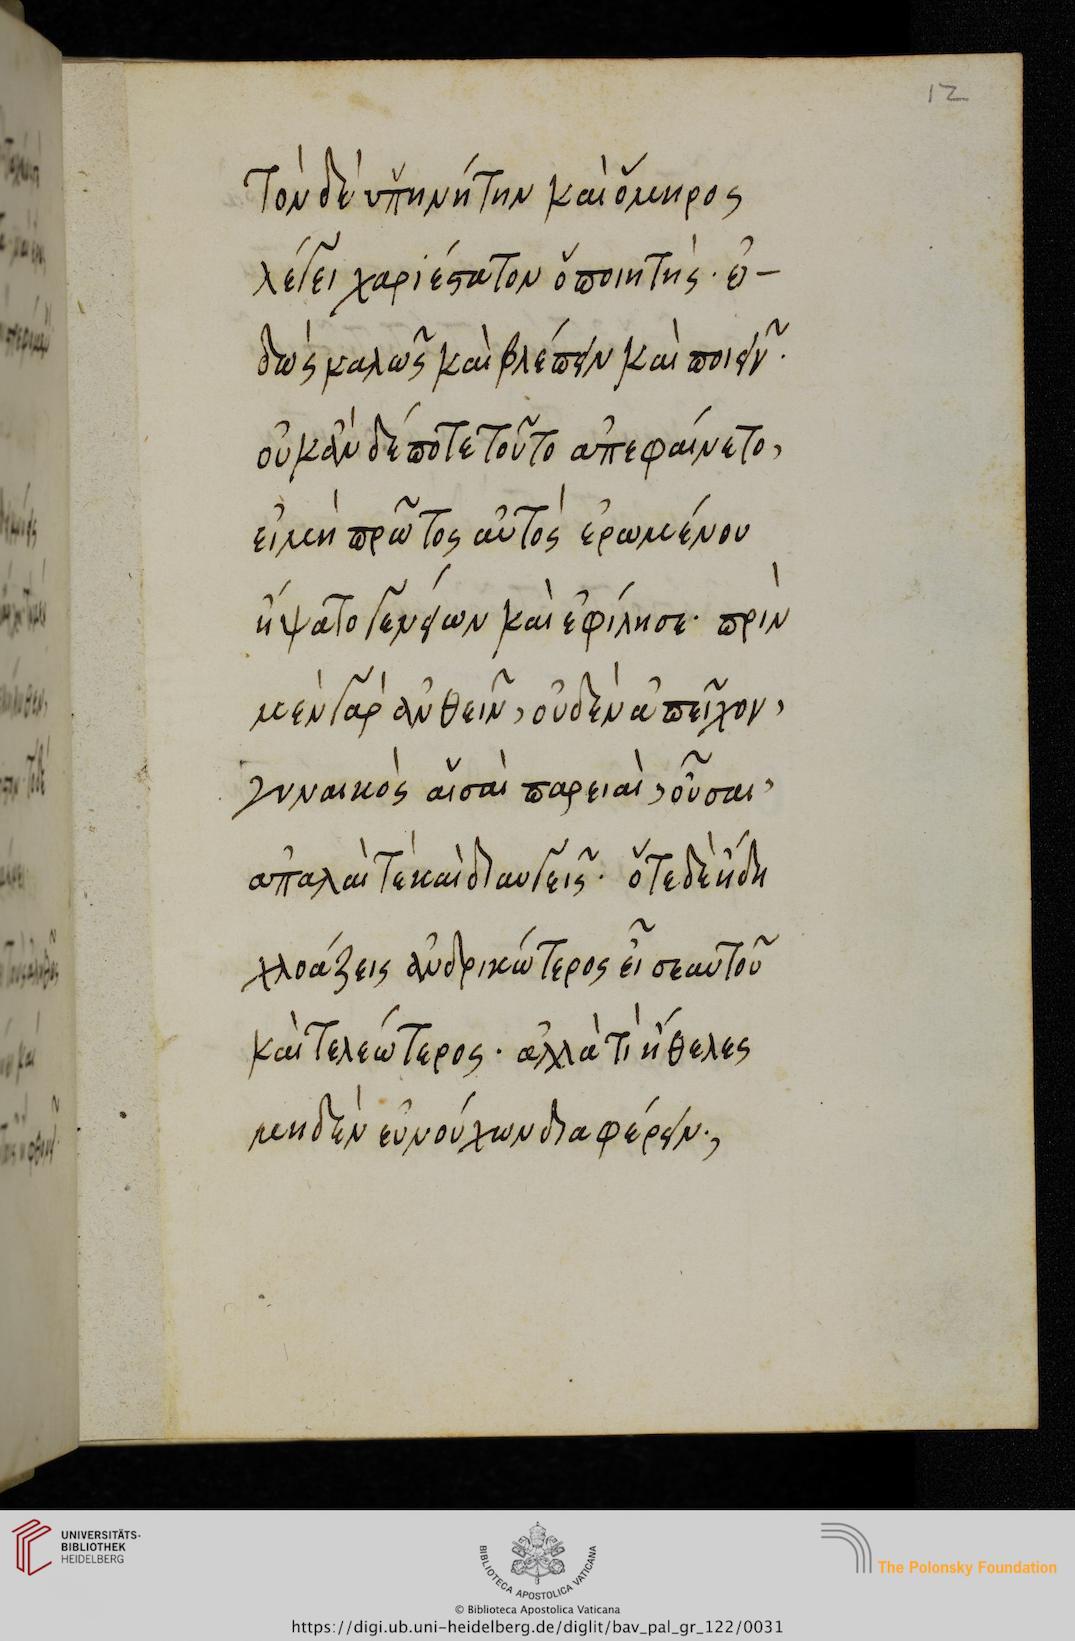 12
Τὸν δὲ ὑπηνήτην καὶ ὅμηρος
λέγει χαριέστατον ὁ ποιητής· εἰ-
δὼς καλῶς καὶ βλέπειν καὶ ποιεῖν·
οὐκ ἂν δέ ποτε τοῦτο ἀπεφαίνετο,
εἰ μὴ πρῶτος αὐτὸς ἐρωμένου
ἥψατο γενείων καὶ ἐφίλησε· πρὶν
μὲν γὰρ ἀνθεῖν, οὐδὲν ἀπεῖχον,
γυναικὸς αἱ σαὶ παρειαὶ, οὖσαι,
ἁπαλαὶ τὲ καὶ διαυγεῖς· ὅτε δὲ ἤδη
χλοάζεις ἀνδρικώτερος εἶ σεαυτοῦ
καὶ τελεώτερος· ἀλλὰ τὶ ἤθελες
μηδὲν εὐνούχων διαφέρειν·,
UNIVERSITÄTS-
BIBLIOTHEK
HEIDELBERG
BIBLIOTECA APOSTOLICA VATICANA
The Polonsky Foundation
© Biblioteca Apostolica Vaticana
https://digi.ub.uni-heidelberg.de/diglit/bav_pal_gr_122/0031